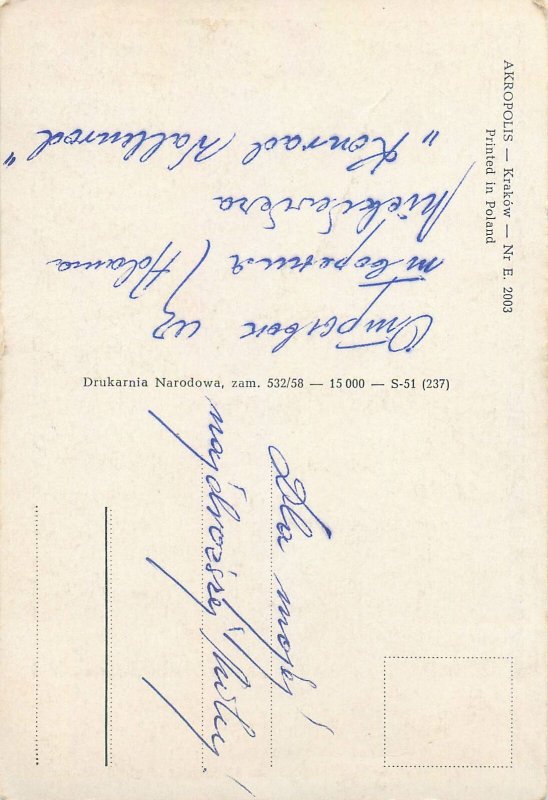 AKROPOLIS — Kraków — Nr E. 2003
Printed in Poland
Отрывок из
творения Adama
Mickiewicza
„Konrad Wallenrod"
Drukarnia Narodowa, zam. 532/58 — 15 000 — S-51 (237)
Dla mojej
najdroższej